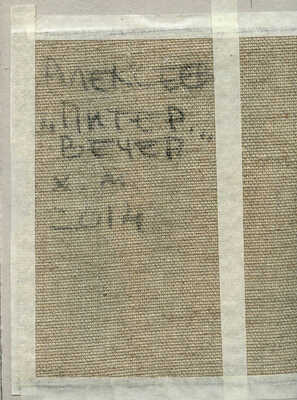 Алексеев
„Питер...
вечер
х.м.
2014